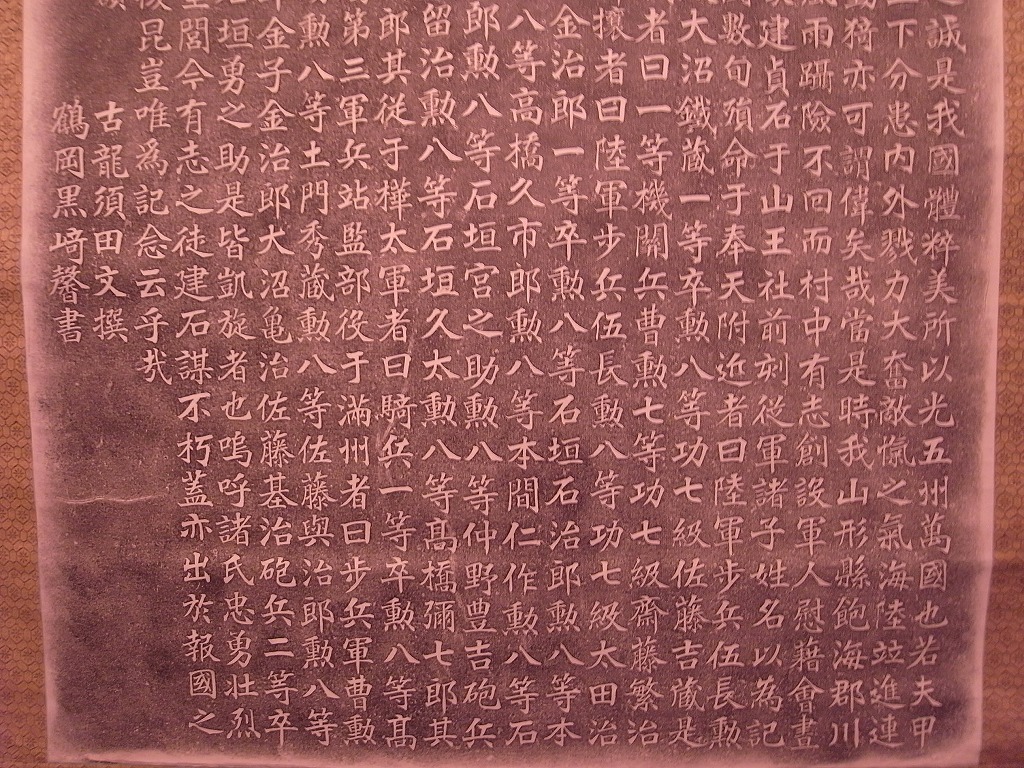 誠是我國體粹美所以光五州萬國也若夫甲
下分患内外戮力大奮敵愾之氣海陸竝進連
猗亦可謂偉矣哉當是時我山形縣飽海郡川
風雨躡險不回而村中有志創設軍人慰藉會晝
建貞石于山王社前刻從軍諸子姓名以為記
數旬殞命于奉天附近者曰陸軍步兵伍長勲
大沼鐵藏一等卒勲八等功七級佐藤吉藏是
者曰一等機關兵曹勲七等功七級齋藤繁治
攘者曰陸軍步兵伍長勲八等功七級太田治
金治郎一等卒勲八等石垣石治郎勲八等本
八等高橋久市郎勲八等本間仁作勲八等石
郎勲八等石垣宮之助勲八等仲野豊吉砲兵
留治勲八等石垣久太勲八等髙橋彌七郎其
郎其從于樺太軍者曰騎兵一等卒勲八等髙
第三軍兵站監部役于滿州者曰步兵軍曹勲
勲八等土門秀藏勲八等佐藤與治郎勲八等
金子金治郎大沼亀治佐藤基治砲兵二等卒
垣勇之助是皆凱旋者也嗚呼諸氏忠勇壯烈
閭今有志之徒建石謀不朽蓋亦出於報國之
昆豈唯為記念云乎哉
古龍須田文撰
鶴岡黒﨑馨書